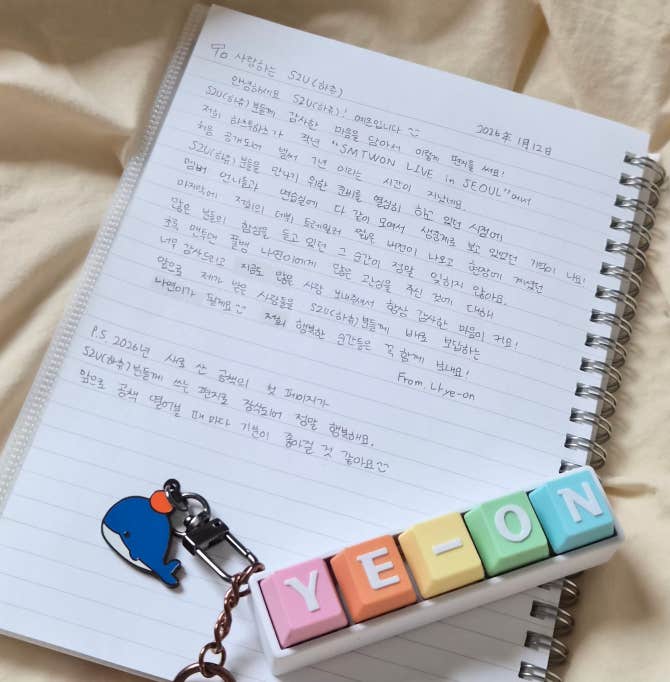 To 사랑하는 S2U(하츄)
2026年 1月 12日
안녕하세요 S2U(하츄)! 예온입니다
S2U(하츄)분들께 감사한 마음을 담아서 이렇게 편지를 써요!
저희 하츠투하츠가 작년 "SMTWON LIVE in SEOUL"에서
처음 공개되어 벌써 1년 이라는 시간이 지났네요.
S2U(하츄)분들을 만나기 위한 준비를 열심히 하고 있던 시점에
멤버 언니들과 연습실에 다 같이 모여서 생중계로 보고 있었던 기억이 나요!
마지막에 저희의 데뷔 트레일러 영상이 나오고 현장에 계셨던
많은 분들의 함성을 듣고 있던 그 순간이 정말 잊히지 않아요.
나연이에게 많은 관심을 주신 것에 대해
너무 감사드리고 지금도 많은 사랑 보내주셔서 항상 감사한 마음이 커요!
앞으로 제가 받은 사랑들을 S2U(하츄)분들께 바로 보답하는
나연이가 될게요 저희 행복한 순간들은 꼭 함께 보내요!
From. Ye-on
P.S 2026년 새로 산 공책의 첫 페이지가
S2U(하츄)분들께 쓰는 편지로 장식되어 정말 행복해요.
앞으로 공책 열어볼 때 마다 기분이 좋아질 것 같아요
YE-ON